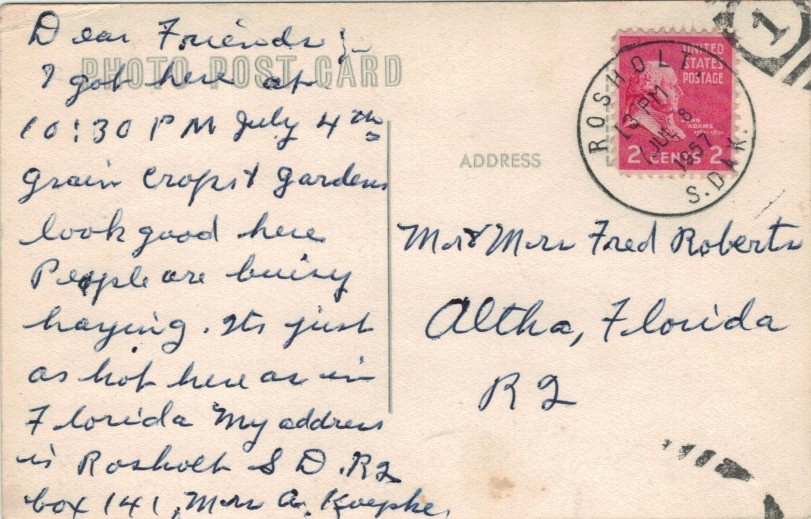 Dear Friends :-
PHOTO POST CARD
I got here at
10:30 PM July 4th
grain crops & gardens
look good here
People are buisy
haying. Its just
as hot here as in
Florida My address
is Rosholt S D. R2
box 141, Mrs A. Koepke,
ADDRESS
UNITED
STATES
POSTAGE
JOHN
ADAMS
2 CENTS 2
ROSHOLT
S. DAK.
PM
JUL 8
1957
1
Mr & Mrs Fred Roberts
Altha, Florida
R2